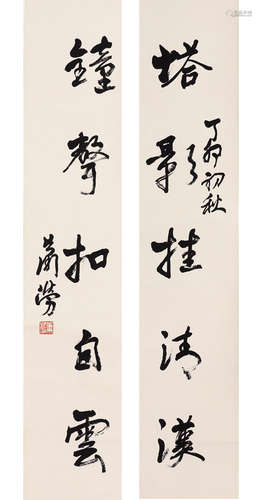 塔影挂清漢
丁卯初秋
鐘聲扣白雲
蕭勞